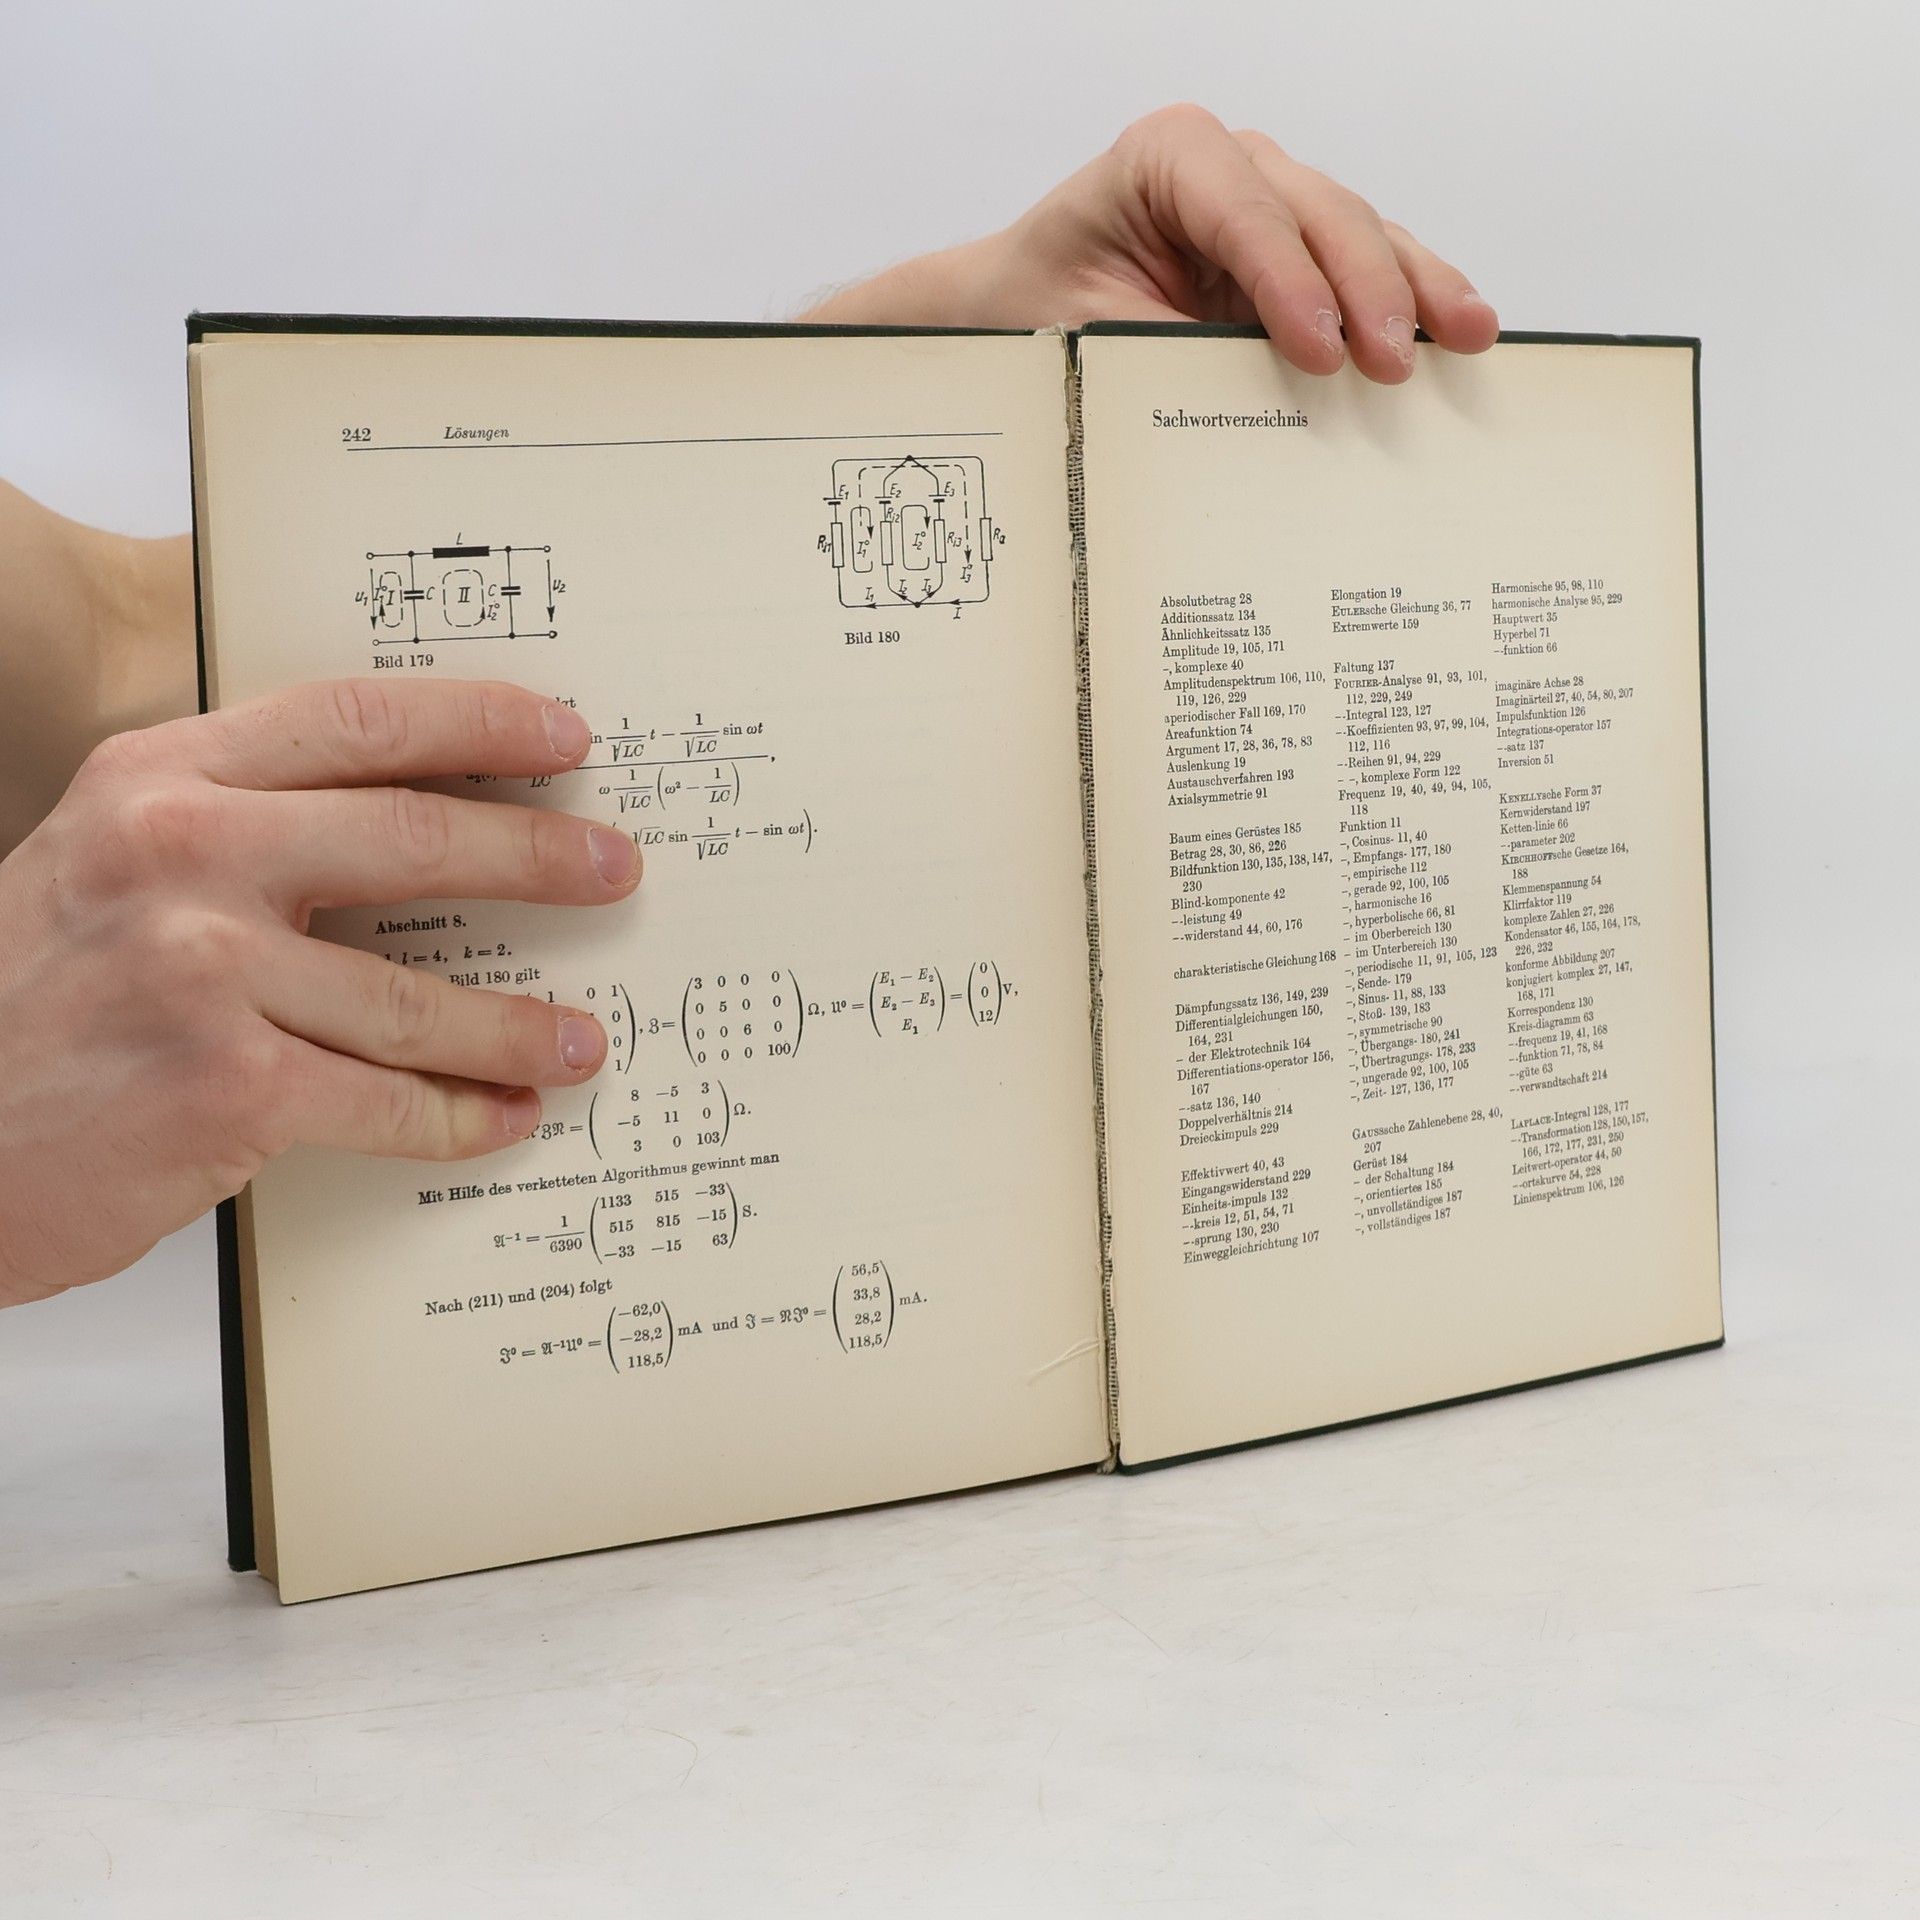 242 Lösungen
L
u1 I1° I C II C I2° u2
Bild 179
E1 E2 E3
Ri1 I1° Ri2 I2° Ri3 I3° Ra
I1 I2 I3
I
Bild 180
in 1/√LC t − 1/√LC sin ωt
LC ω 1/√LC (ω² − 1/LC) ,
√LC sin 1/√LC t − sin ωt).
Abschnitt 8.
l = 4, k = 2.
Bild 180 gilt
1 0 1
0
0
1), ℨ = (3 0 0 0
0 5 0 0
0 0 6 0
0 0 0 100) Ω, 𝔘⁰ = (E1 − E2
E2 − E3
E1) = (0
0
12) V,
ℨ𝔑 = (8 −5 3
−5 11 0
3 0 103) Ω.
Mit Hilfe des verketteten Algorithmus gewinnt man
𝔄⁻¹ = 1/6390 (1133 515 −33
515 815 −15
−33 −15 63) S.
Nach (211) und (204) folgt
𝔍⁰ = 𝔄⁻¹𝔘⁰ = (−62,0
−28,2
118,5) mA und 𝔍 = 𝔑𝔍⁰ = (56,5
33,8
28,2
118,5) mA.
Sachwortverzeichnis
Absolutbetrag 28
Additionssatz 134
Ähnlichkeitssatz 135
Amplitude 19, 105, 171
–, komplexe 40
Amplitudenspektrum 106, 110,
119, 126, 229
aperiodischer Fall 169, 170
Areafunktion 74
Argument 17, 28, 36, 78, 83
Auslenkung 19
Austauschverfahren 193
Axialsymmetrie 91
Baum eines Gerüstes 185
Betrag 28, 30, 86, 226
Bildfunktion 130, 135, 138, 147,
230
Blind-komponente 42
--leistung 49
--widerstand 44, 60, 176
charakteristische Gleichung 168
Dämpfungssatz 136, 149, 239
Differentialgleichungen 150,
164, 231
– der Elektrotechnik 164
Differentiations-operator 156,
167
--satz 136, 140
Doppelverhältnis 214
Dreieckimpuls 229
Effektivwert 40, 43
Eingangswiderstand 229
Einheits-impuls 132
--kreis 12, 51, 54, 71
--sprung 130, 230
Einweggleichrichtung 107
Elongation 19
EULERsche Gleichung 36, 77
Extremwerte 159
Faltung 137
FOURIER-Analyse 91, 93, 101,
112, 229, 249
--Integral 123, 127
--Koeffizienten 93, 97, 99, 104,
112, 116
--Reihen 91, 94, 229
– –, komplexe Form 122
Frequenz 19, 40, 49, 94, 105,
118
Funktion 11
–, Cosinus- 11, 40
–, Empfangs- 177, 180
–, empirische 112
–, gerade 92, 100, 105
–, harmonische 16
–, hyperbolische 66, 81
– im Oberbereich 130
– im Unterbereich 130
–, periodische 11, 91, 105, 123
–, Sende- 179
–, Sinus- 11, 88, 133
–, Stoß- 139, 183
–, symmetrische 90
–, Übergangs- 180, 241
–, Übertragungs- 178, 233
–, ungerade 92, 100, 105
–, Zeit- 127, 136, 177
GAUSSsche Zahlenebene 28, 40,
207
Gerüst 184
– der Schaltung 184
–, orientiertes 185
–, unvollständiges 187
–, vollständiges 187
Harmonische 95, 98, 110
harmonische Analyse 95, 229
Hauptwert 35
Hyperbel 71
--funktion 66
imaginäre Achse 28
Imaginärteil 27, 40, 54, 80, 207
Impulsfunktion 126
Integrations-operator 157
--satz 137
Inversion 51
KENELLYsche Form 37
Kernwiderstand 197
Ketten-linie 66
--parameter 202
KIRCHHOFFsche Gesetze 164,
188
Klemmenspannung 54
Klirrfaktor 119
komplexe Zahlen 27, 226
Kondensator 46, 155, 164, 178,
226, 232
konforme Abbildung 207
konjugiert komplex 27, 147,
168, 171
Korrespondenz 130
Kreis-diagramm 63
--frequenz 19, 41, 168
--funktion 71, 78, 84
--güte 63
--verwandtschaft 214
LAPLACE-Integral 128, 177
--Transformation 128, 150, 157,
166, 172, 177, 231, 250
Leitwert-operator 44, 50
--ortskurve 54, 228
Linienspektrum 106, 126